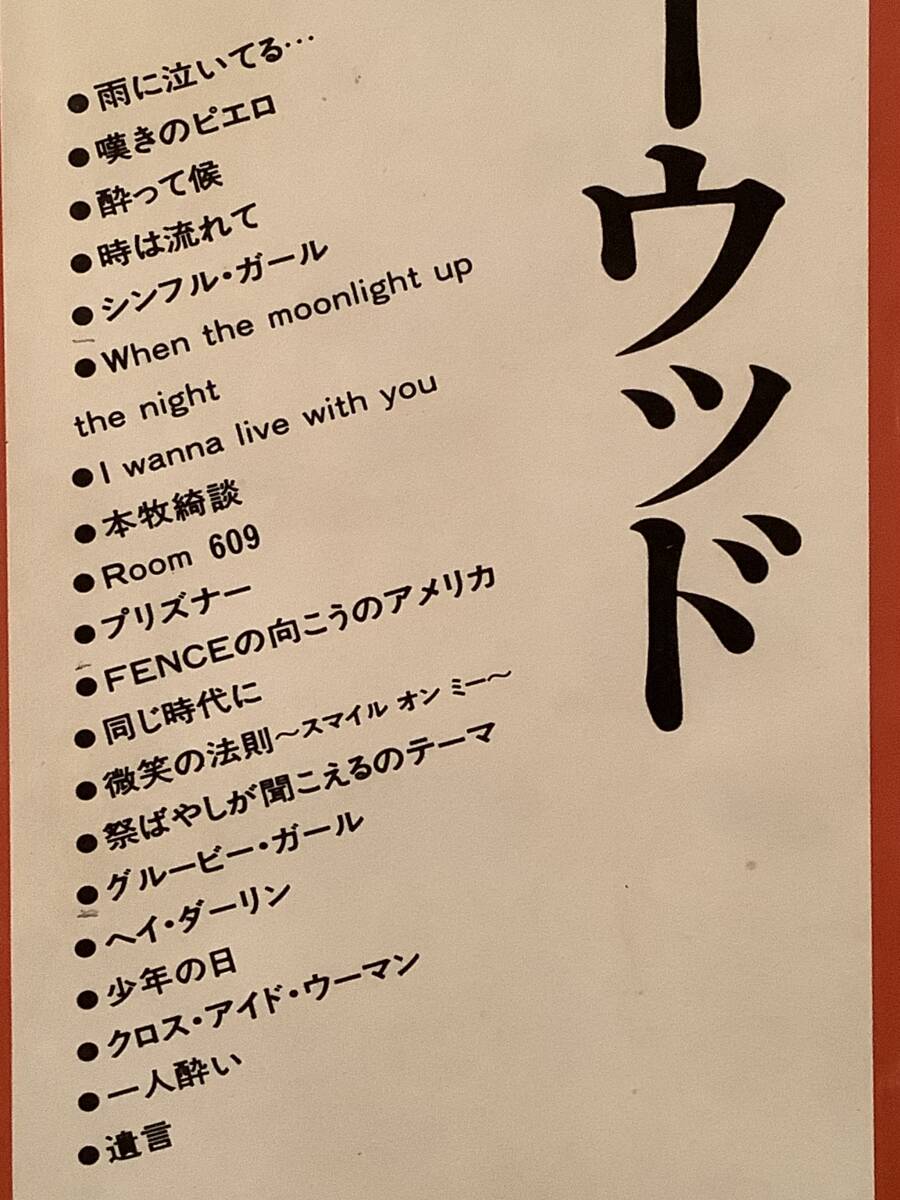 ーウッド
●雨に泣いてる…
●嘆きのピエロ
●酔って候
●時は流れて
●シンフル・ガール
●When the moonlight up
the night
●I wanna live with you
●本牧綺談
●Room 609
●プリズナー
●FENCEの向こうのアメリカ
●同じ時代に
●微笑の法則〜スマイル オン ミー〜
●祭ばやしが聞こえるのテーマ
●グルービー・ガール
●ヘイ・ダーリン
●少年の日
●クロス・アイド・ウーマン
●一人酔い
●遺言